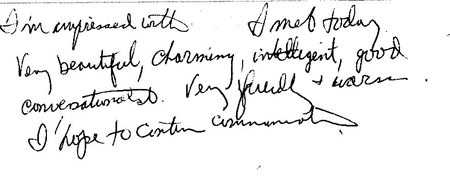 I'm impressed with I met today
Very beautiful, charming, intelligent, good
conversationalist. Very friendly + warm.
I hope to continue communication.